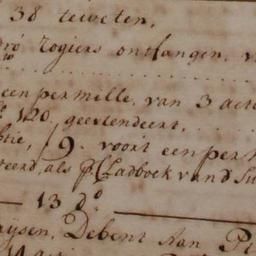 38 teweten,
dro Rogiers ontfangen, v
een per mille, van 3 acte
120. geextendeert,
ptie, 19. voort een per
teerd, als p. Cladboek vand Su
13 do
uijsen, Debent Aan Pi